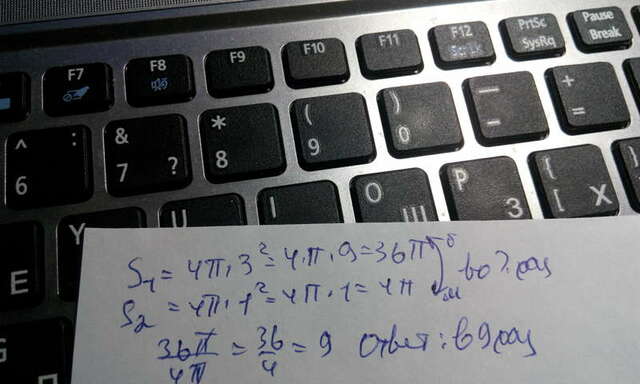 F7 F8 F9 F10 F11 F12 PrtSc SysRq Pause Break
^ : 6 & 7 ? * 8 ( 9 ) 0 — - + =
E Y U I О Щ P З { [ Х
S₁ = 4π · 3² = 4 · π · 9 = 36π б во ? раз
S₂ = 4π · 1² = 4π · 1 = 4π м
36π/4π = 36/4 = 9 Ответ: в 9 раз